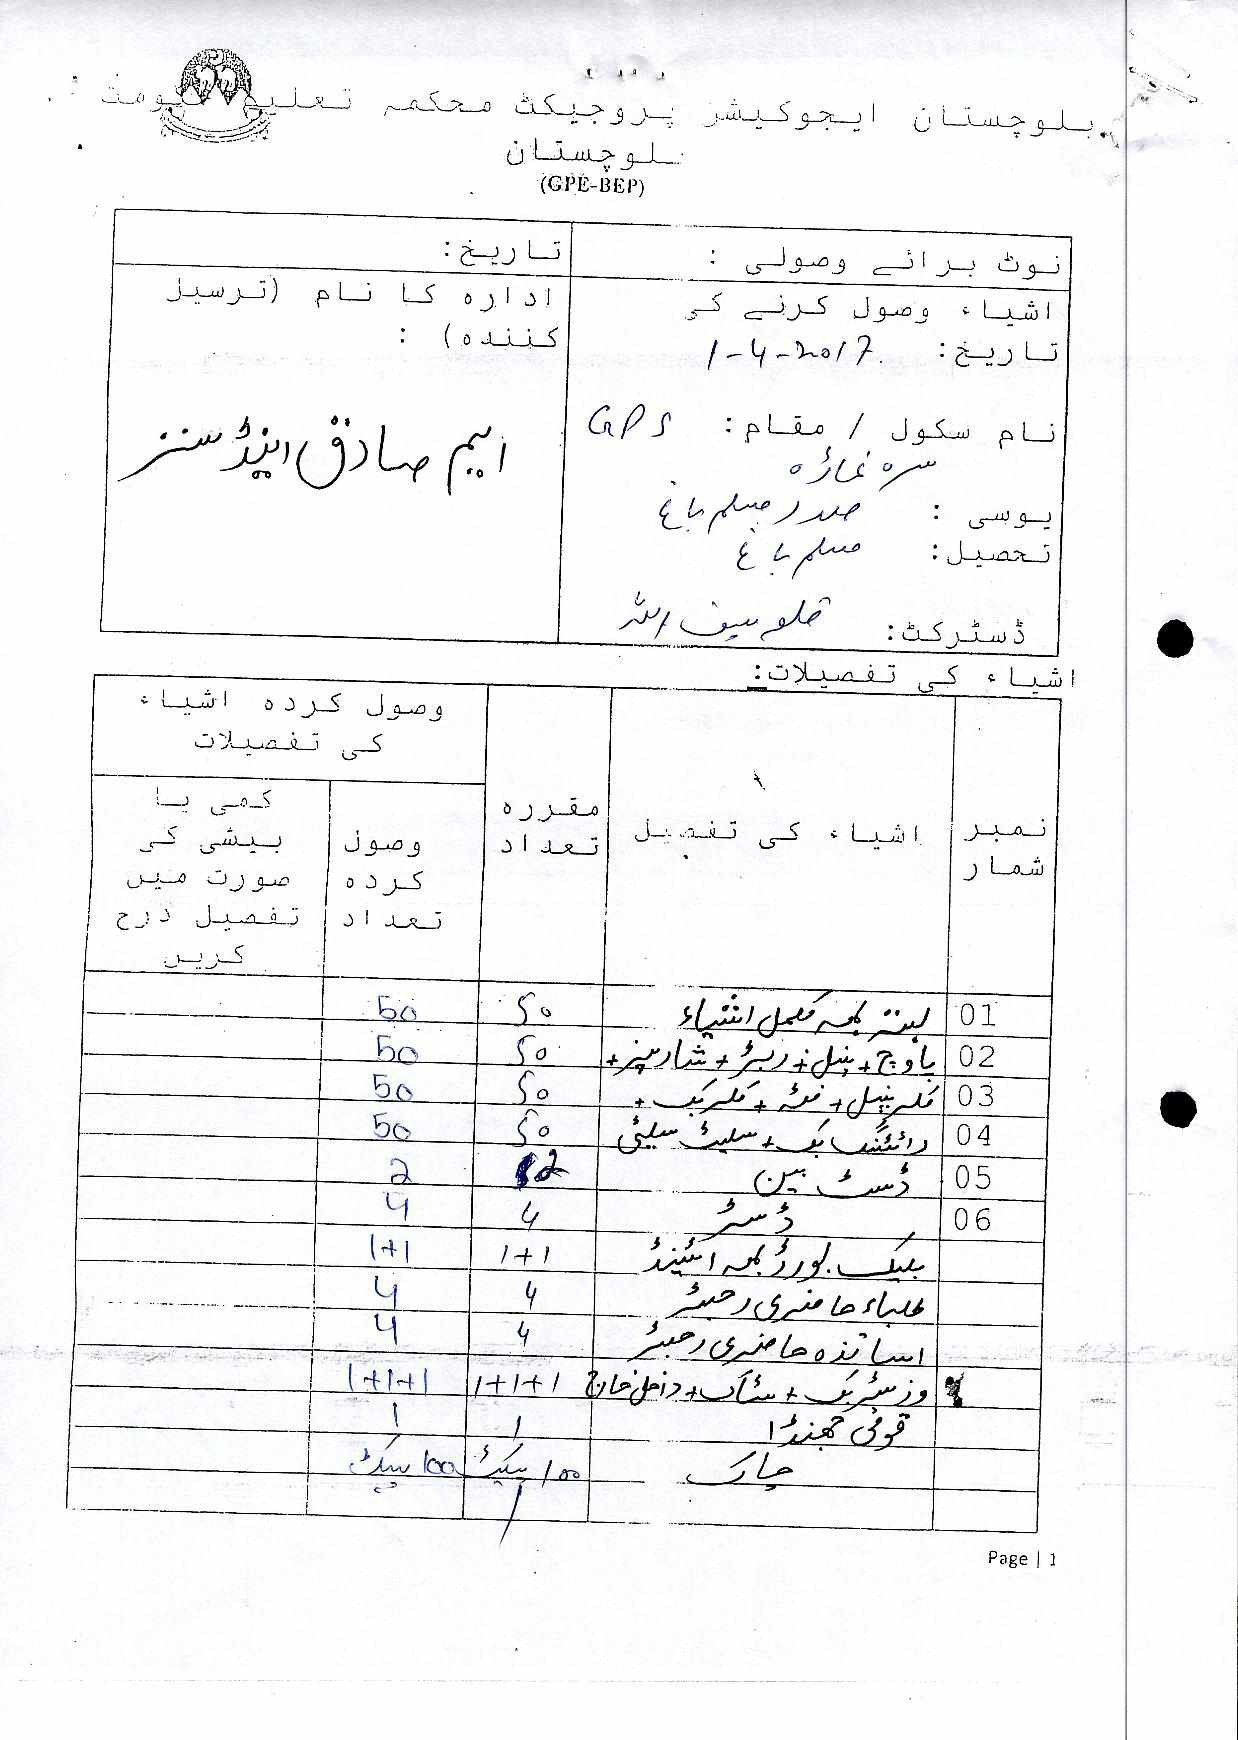 بلوچستان ایجوکیشنز پروجیکٹ محکمہ تعلیم
بلوچستان
(GPE-BEP)
نوٹ برائے وصولی :
تاریخ:
اشیاء وصول کرنے کی
تاریخ: 1-4-2017
نام سکول / مقام: GPS
سرہ غاڑہ
یوسی : صدر مسلم باغ
تحصیل: مسلم باغ
ڈسٹرکٹ: قلعہ سیف اللہ
ادارہ کا نام (ترسیل
کنندہ) :
ایم صادق اینڈ سنز
اشیاء کی تفصیلات:
نمبر شمار
اشیاء کی تفصیل
مقررہ تعداد
وصول کردہ اشیاء
کی تفصیلات
وصول کردہ تعداد
کمی یا
بیشی کی
صورت میں
تفصیل درج
کریں
01 بستہ بمعہ مکمل اشیاء 50 50
02 + پنسل + ربڑ + شارپنر + 50 50
03 کلر پنسل + فٹہ + کلر بک + 50 50
04 رائٹنگ بک + سلیٹ سلیٹی 50 50
05 ڈسٹ بین 2 2
06 ڈسٹر 4 4
بلیک بورڈ بمعہ اسٹینڈ 1+1 1+1
طلباء حاضری رجسٹر 4 4
اساتذہ حاضری رجسٹر 4 4
وزیٹر بک + سٹاک + داخل خارج 1+1+1 1+1+1
قومی جھنڈا 1 1
چاک 100 پیکٹ 100 پیکٹ
Page | 1